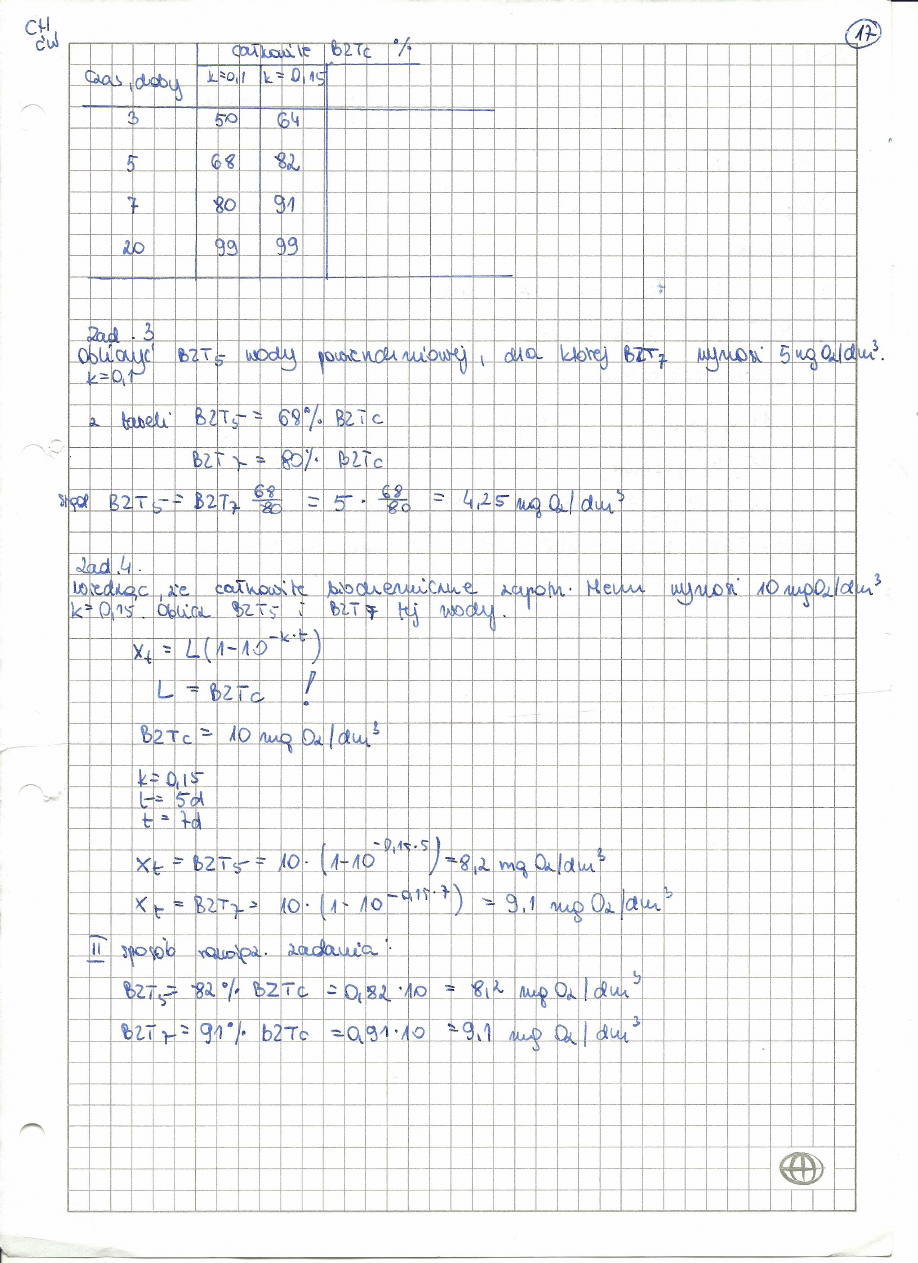 CH
ćw
17
całkowite BZTc %
Czas, doby k=0,1 k=0,15
3 50 64
5 68 82
7 80 91
20 99 99
Zad. 3
Obliczyć BZT5 wody powierzchniowej, dla której BZT7 wynosi 5 mg O2/dm³.
k=0,1
z tabeli BZT5 = 68% BZTc
BZT7 = 80% BZTc
stąd BZT5 = BZT7 68/80 = 5 · 68/80 = 4,25 mg O2/dm³
Zad. 4.
wiedząc, że całkowite biochemiczne zapotr. tlenu wynosi 10 mg O2/dm³
k=0,15. Oblicz BZT5 i BZT7 tej wody.
Xt = L(1-10^-k·t)
L = BZTc !
BZTc = 10 mg O2/dm³
k=0,15
t= 5d
t= 7d
Xt = BZT5 = 10·(1-10^-0,15·5) = 8,2 mg O2/dm³
Xt = BZT7 = 10·(1-10^-0,15·7) = 9,1 mg O2/dm³
II sposób zadania:
BZT5 = 82% BZTc = 0,82·10 = 8,2 mg O2/dm³
BZT7 = 91% BZTc = 0,91·10 = 9,1 mg O2/dm³